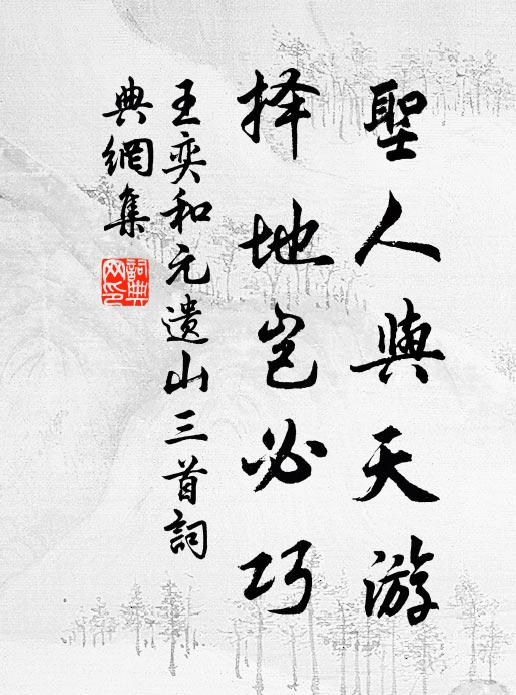 聖人與天游
择地岂必巧
王奕和元遗山三首詞
典網集
詞典
网印